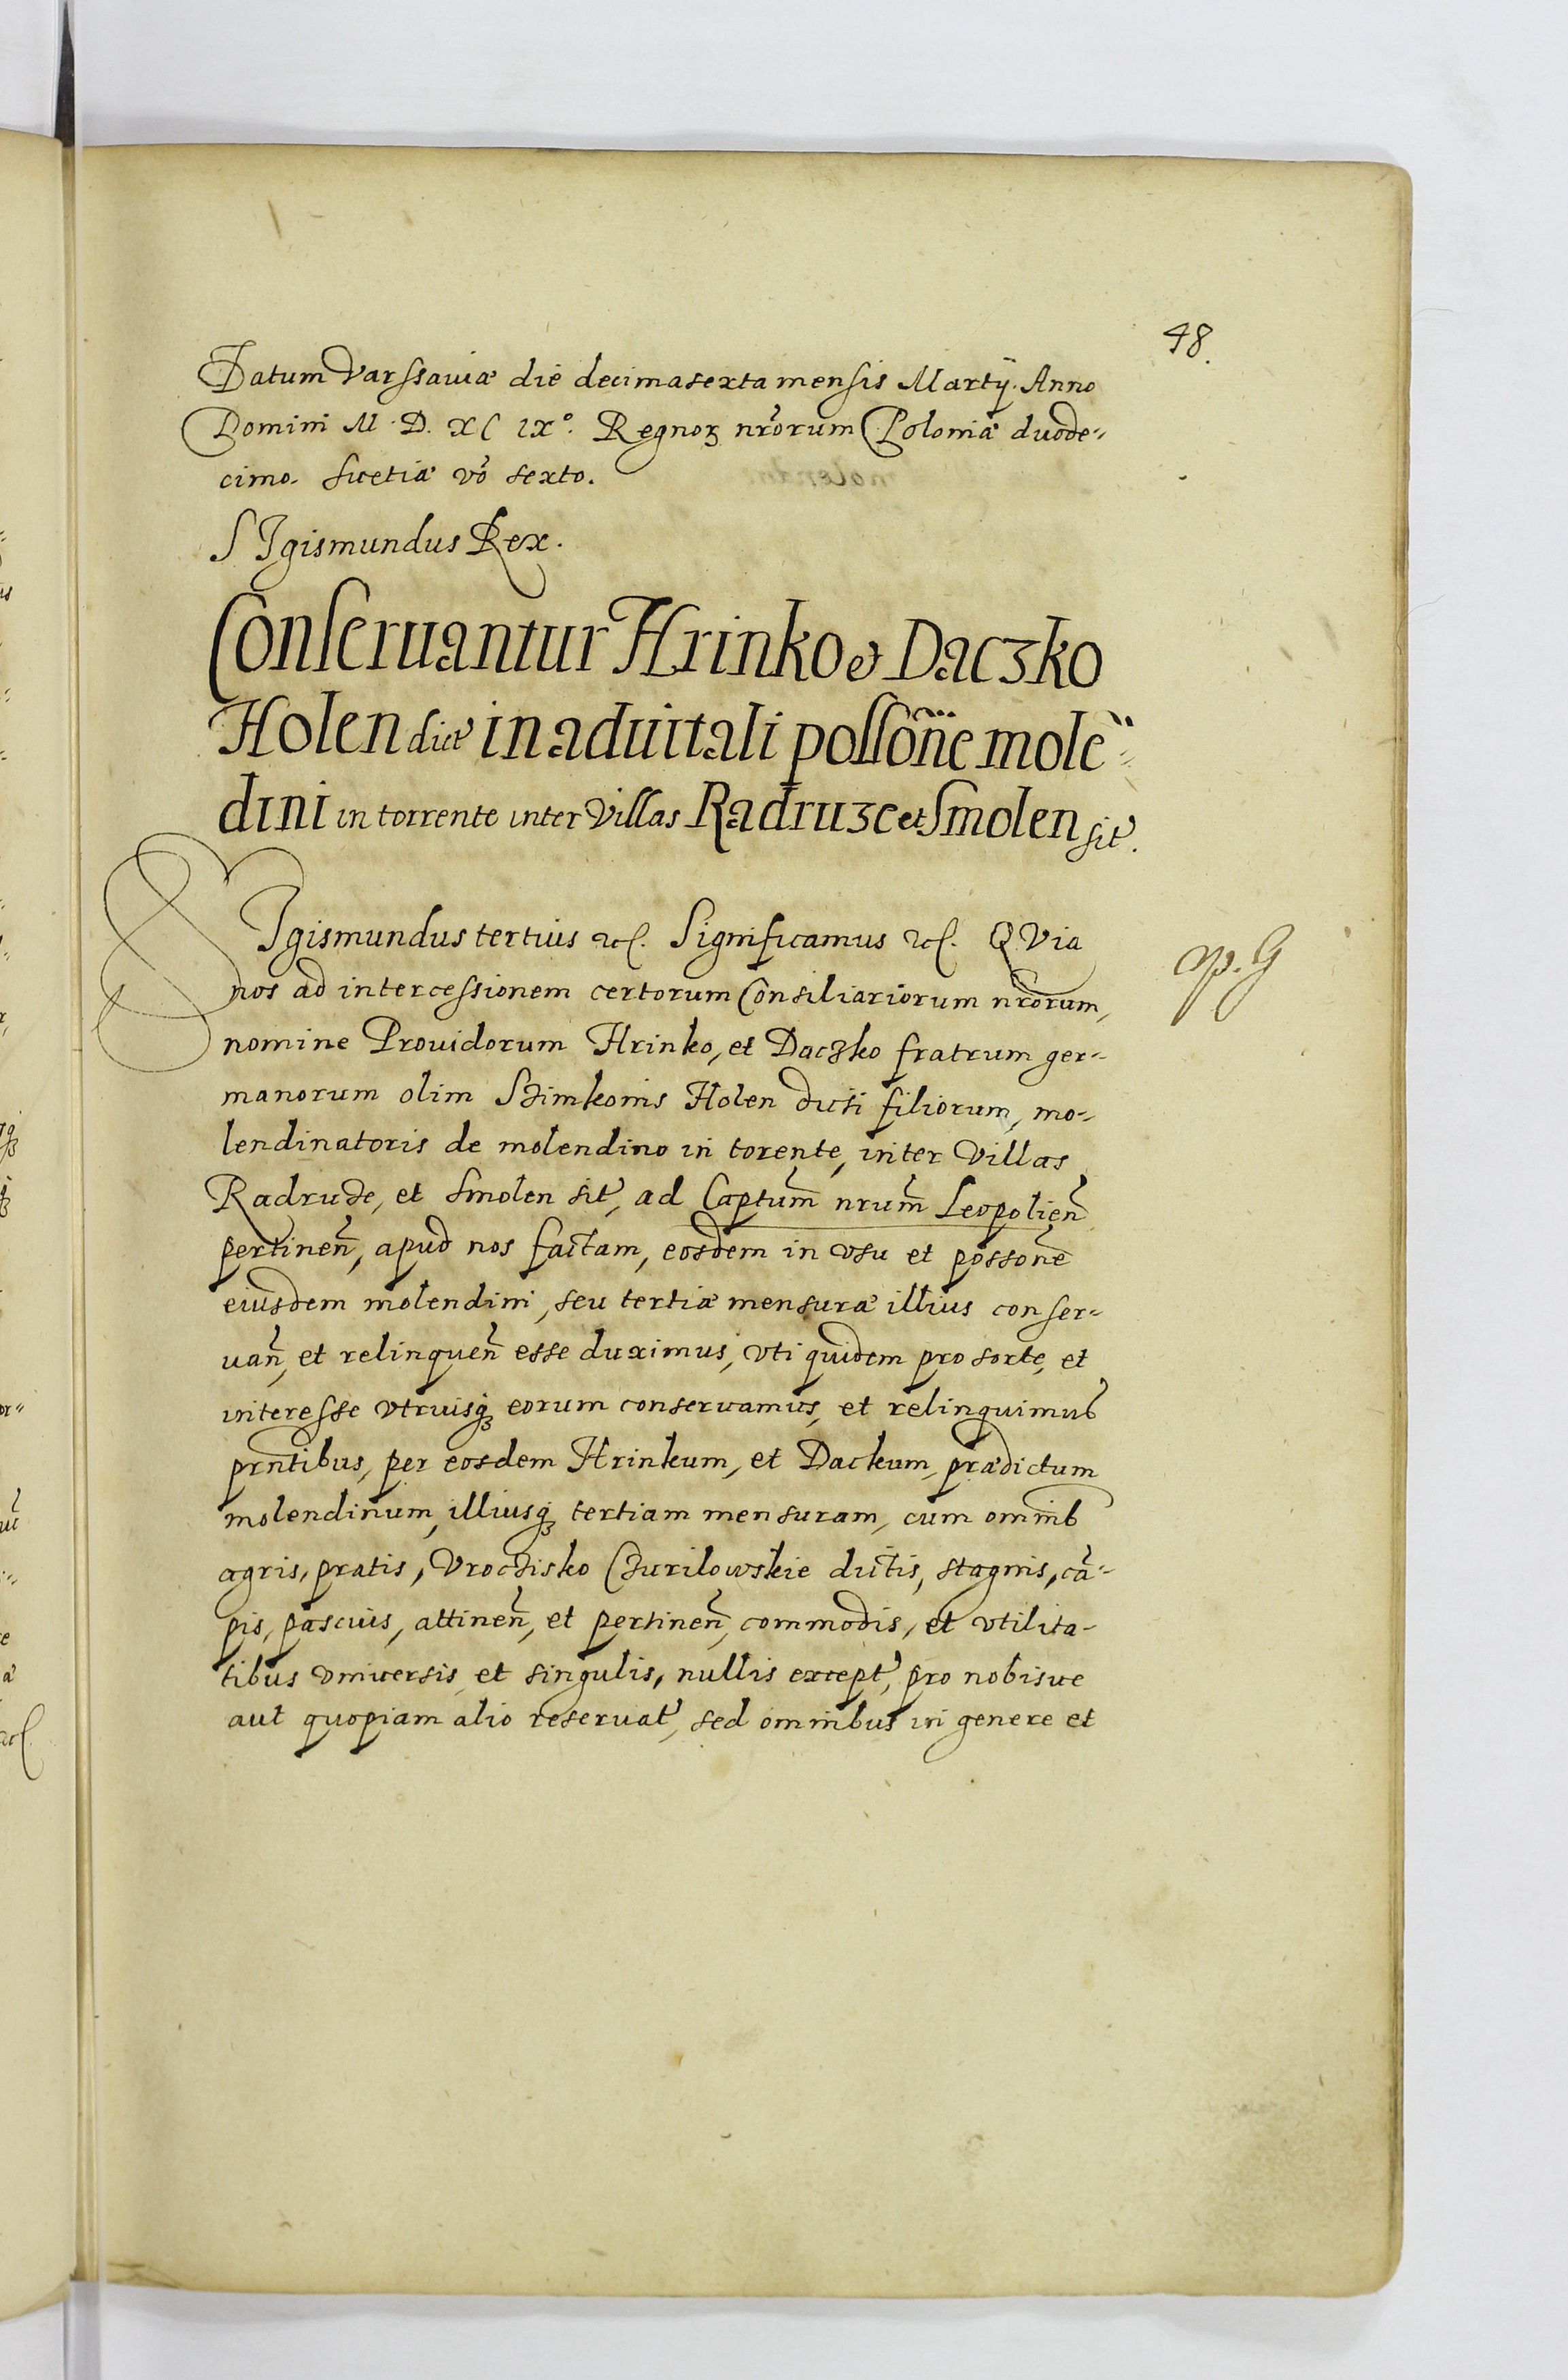 48.
Datum Varssauiæ die decimasexta mensis Martÿ. Anno
Domini M. D. XC IX°. Regnoꝝ nr̃orum Poloniæ duode-
cimo. Suetiæ vo᷃ sexto.
SIgismundus Rex.
Conseruantur Hrinko et Daczko
Holen dict᷃ in aduitali posso᷃ne mole᷃-
dini in torrente inter Villas Radruze et Smolen sit᷃.
SIgismundus tertius ꝛc. Significamus ꝛc. QVia
nos ad intercessionem certorum Consiliariorum nr̃orum,
nomine Prouidorum Hrinko, et Daczko fratrum ger-
manorum olim Szimkonis Holen dicti filiorum, mo-
lendinatoris de molendino in torente, inter Villas
Radruze, et Smolen sit᷃, ad Captum᷃ nrum᷃ Leopolien᷃
pertinen᷃, apud nos factam, eosdem in vsu et possone᷃
eiusdem molendini, seu tertiæ mensuræ illius conser-
uan᷃, et relinquen᷃ esse duximus, vti quidem pro sorte, et
interesse vtriusqꝫ eorum conseruamus, et relinquimus
prn᷃tibus, per eosdem Hrinkum, et Dackum, prædictum
molendinum, illiusqꝫ tertiam mensuram, cum omnib
agris, pratis, Vroczisko Czurilowskie dictis, stagnis, ca᷃-
pis, pascuis, attinen᷃, et pertinen᷃, commodis, et vtilita-
tibus vniuersis et singulis, nullis except᷃, pro nobisue
aut quopiam alio reseruat᷃, sed omnibus in genere et